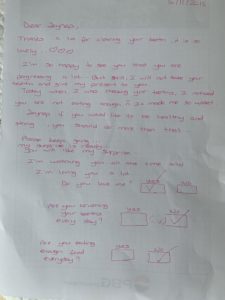 Dear Zeynep,
Thanks a lot for cleaning your teeth, it is so
lovely. ♡♡♡
I'm so happy to see you that you are
progressing a lot. But again, I will not take your
teeth and give my present to you.
Today when I was missing you teething, I noticed
you are not eating enough. It is made me so upset.
Zeynep if you would like to be healthy and
strong, you should eat more than that.
Please keep going
my surprise is ready.
You will like my surprise.
I'm watching you all the time and
I'm loving you a lot.
Do you love me? Yes No
Are you brushing
your teeth
every day? Yes No
Are you eating
enough food
everyday? Yes No